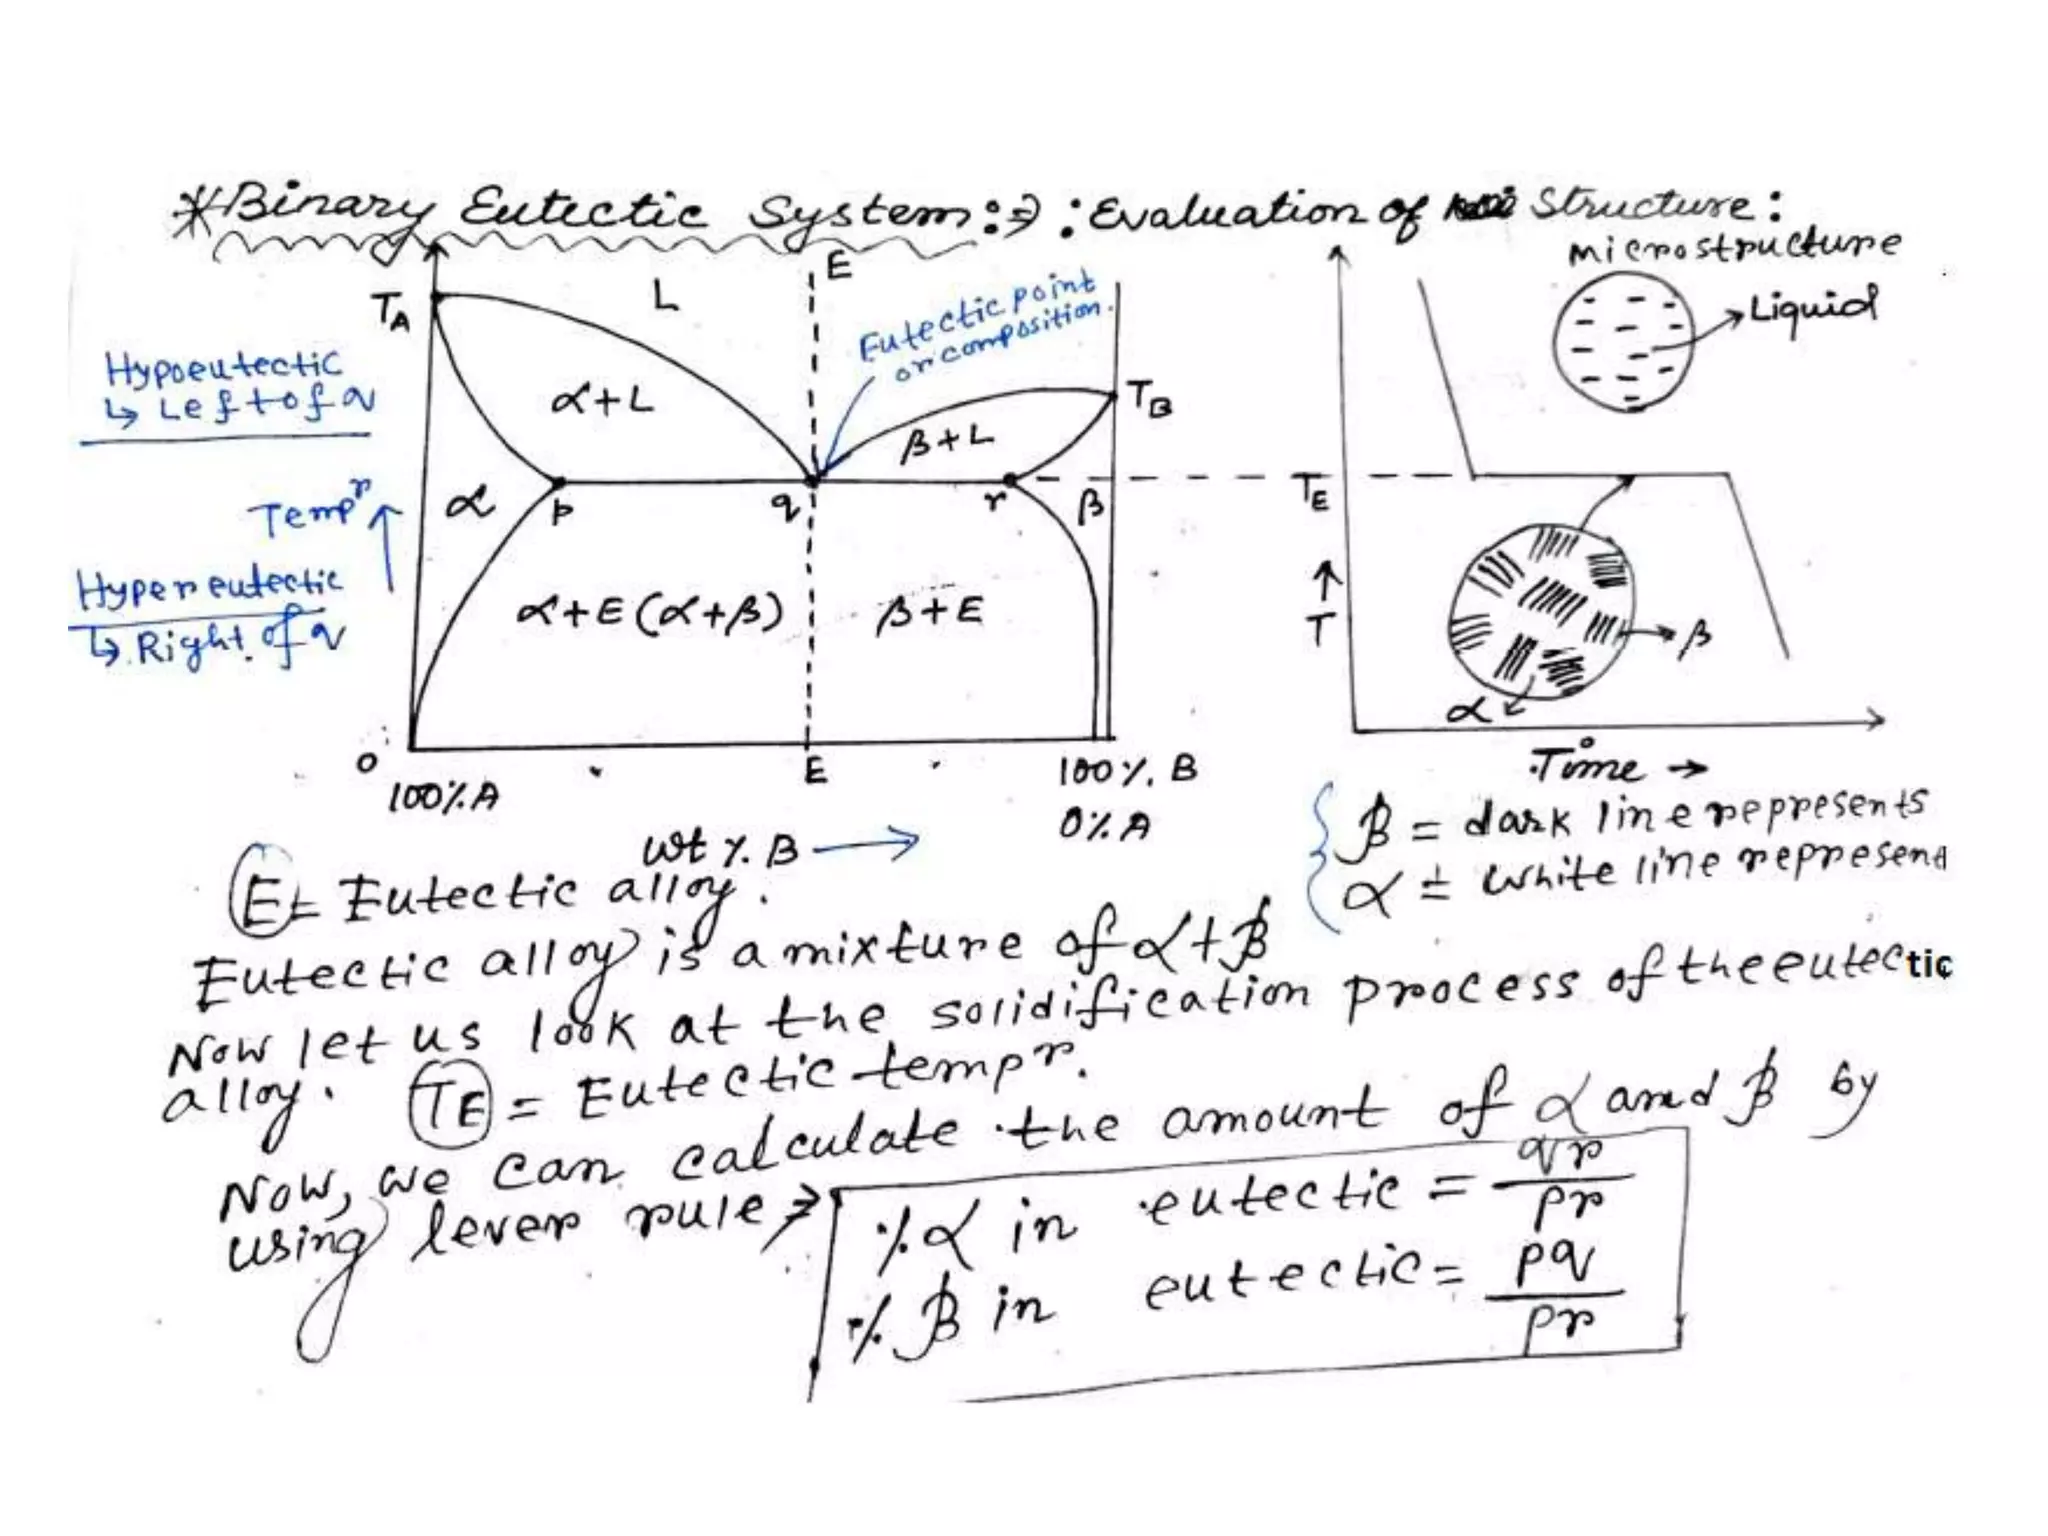 *Binary Eutectic System:⇒ : Evaluation of Structure:
Microstructure
Liquid
E
L
Eutectic point
or composition.
TA
Hypoeutectic
↳ Left of q
α+L
β+L
TB
Tempr ↑
α
p
q
r
β
TE
Hypereutectic
↳ Right of q
α+E (α+β)
β+E
↑
T
β
α
0
100% A
E
100% B
0% A
Time →
Wt % B →
β = dark line represents
α = white line represent
E = Eutectic alloy.
Eutectic alloy is a mixture of α+β
Now let us look at the solidification process of the eutectic
alloy. TE = Eutectic tempr.
Now, we can calculate the amount of α and β by
using lever rule ⇒
% α in eutectic = qr/pr
% β in eutectic = pq/pr